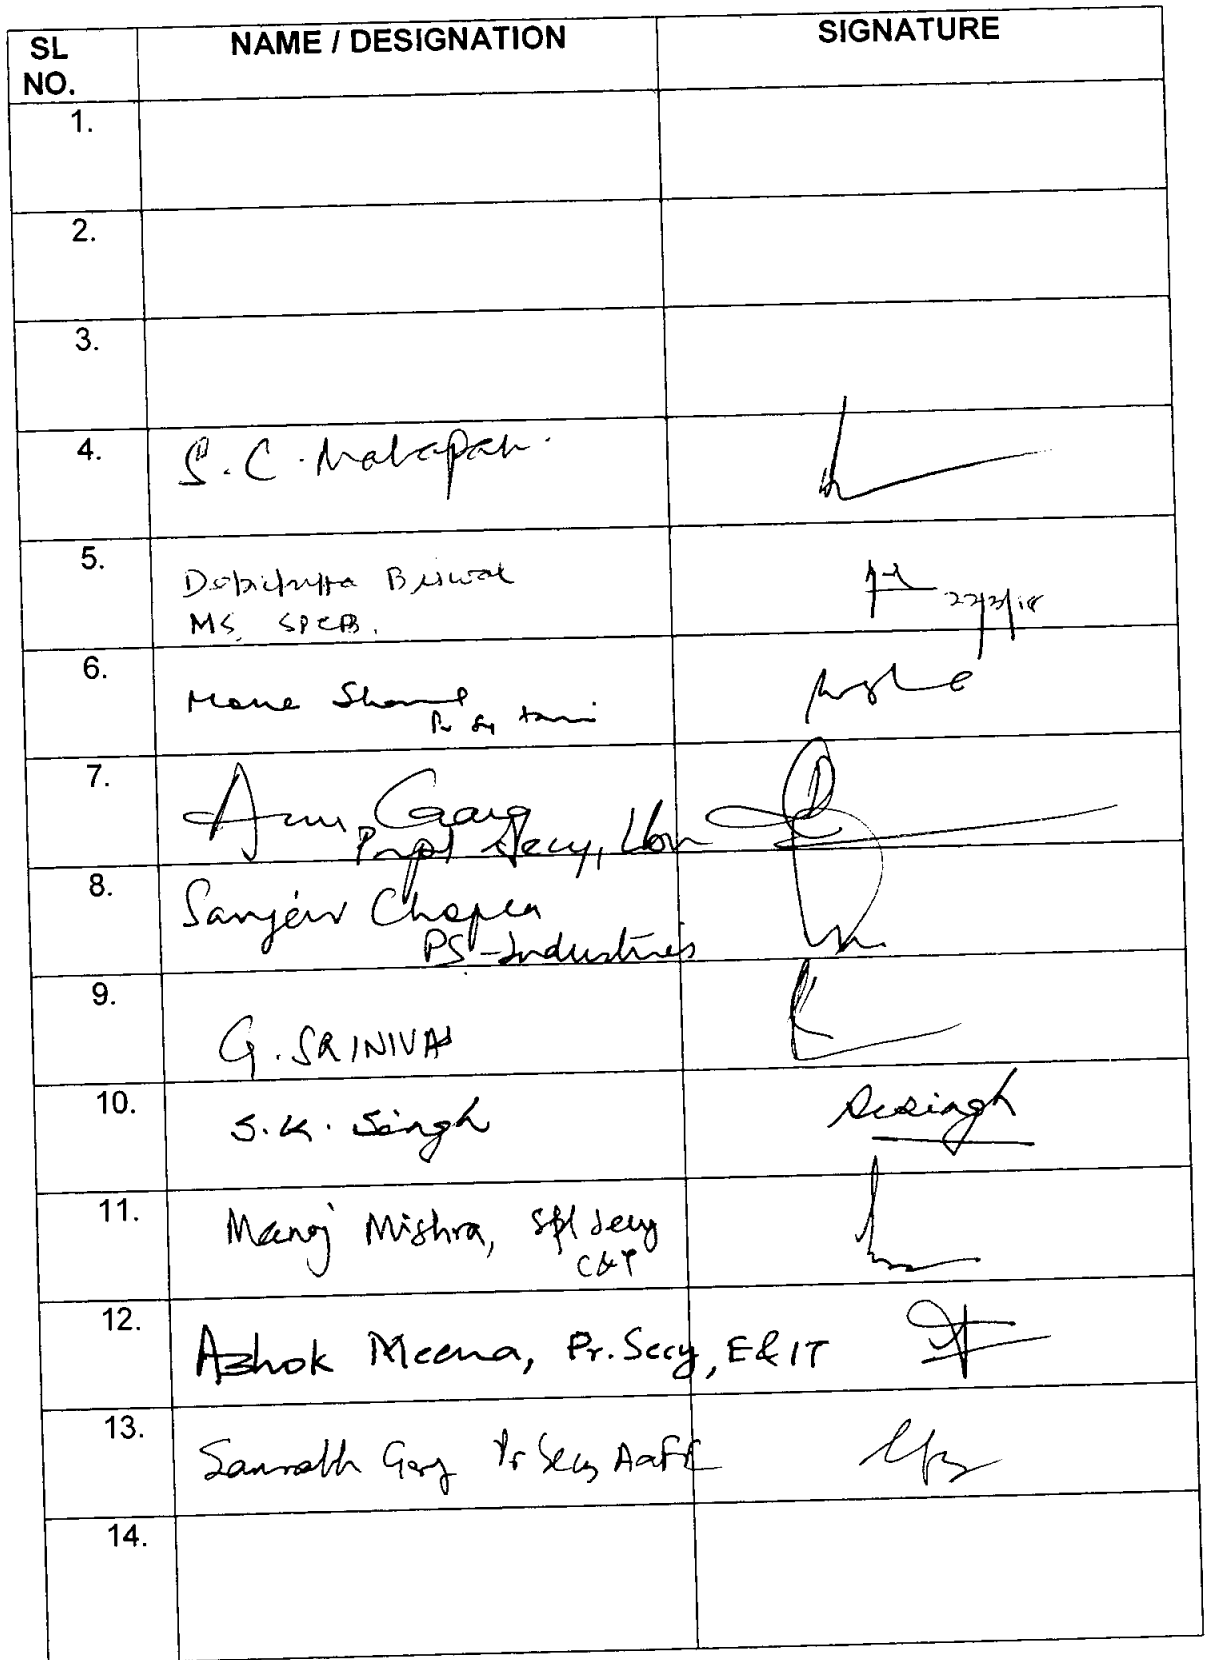 SL NO. NAME / DESIGNATION SIGNATURE
1.
2.
3.
4. S. C. Mahapatra
5. Debidutta Biswal 22/3/18
MS, SPCB.
6. Mona Sharma
7.
Prpl Secy,
8. Sanjeev Chopra
PS-Industries
9. G. SRINIVAS
10. S.K. Singh SKSingh
11. Manoj Mishra, Spl Secy
C&T
12. Ashok Meena, Pr. Secy, E&IT
13. Saurabh Garg Pr Secy
14.